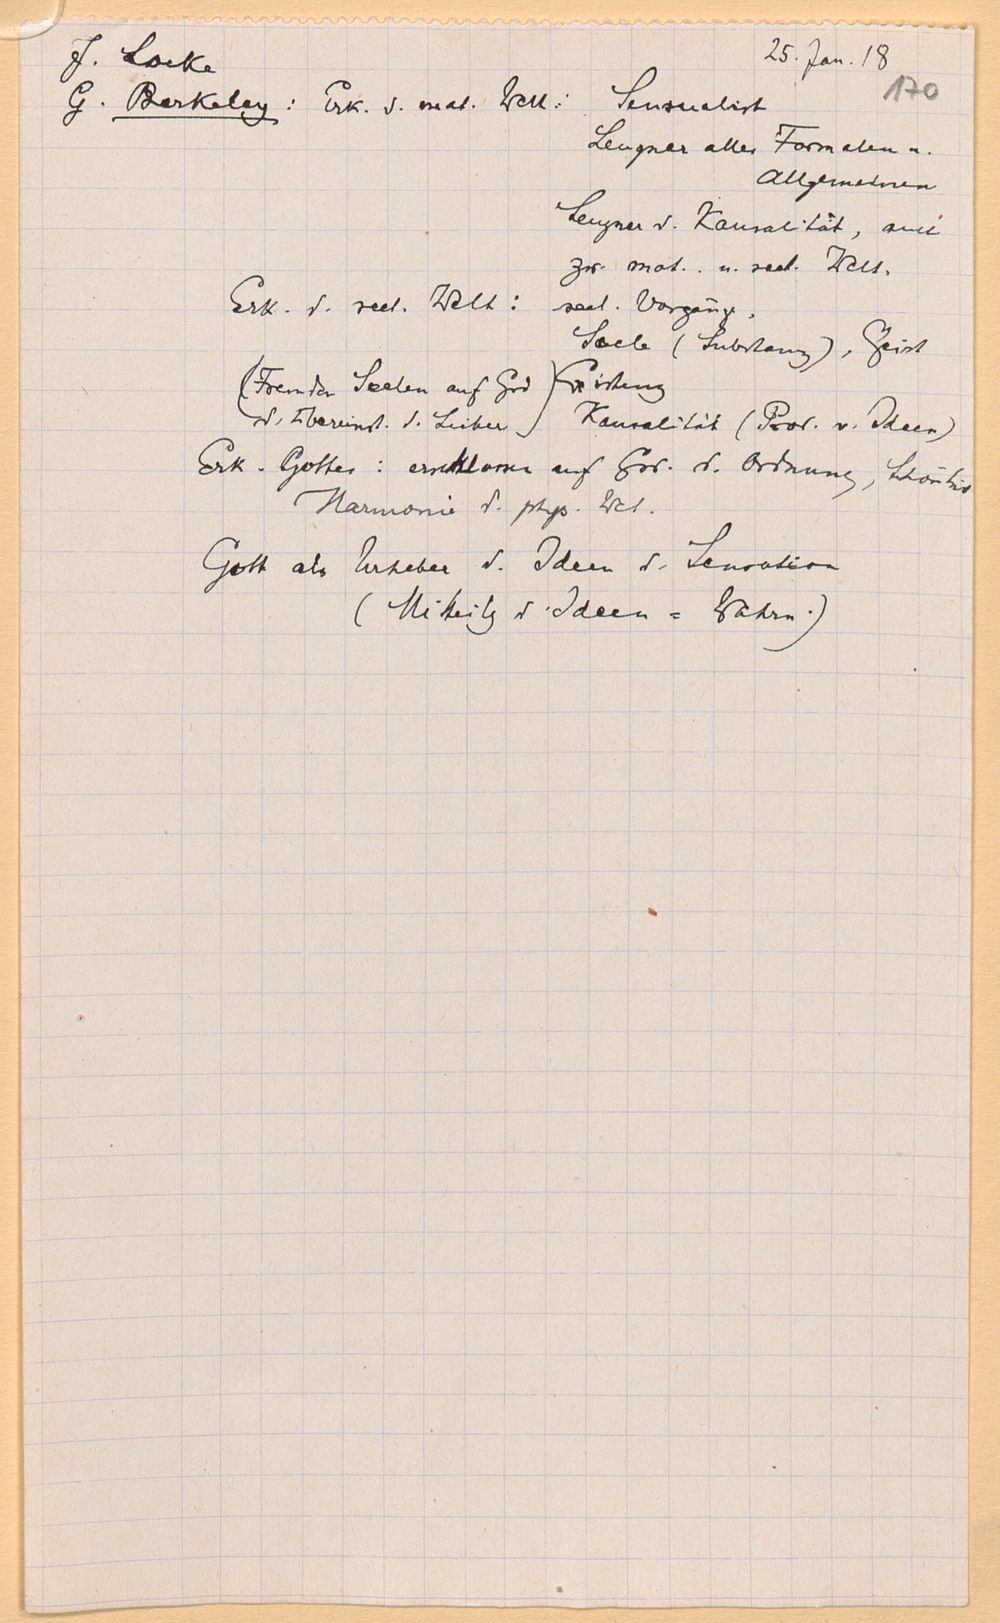 J. Locke
25. Jan. 18
170
G. Berkeley : Erk. d. mat. Welt : Sensualist
Leugner alles Formalen u.
Allgemeinen
Leugner d. Kausalität, auch
zw. mat. u. seel. Welt.
Erk. d. seel. Welt : seel. Vorgänge,
Seele (Substanz), Geist
(Fremde Seelen auf Grd Existenz
d. Übereinst. d. Leiber) Kausalität (Prod. v. Ideen)
Erk. Gottes : erschlossen auf Grd. d. Ordnung, Schönheit
Harmonie d. phys. Welt.
Gott als Urheber d. Ideen d. Sensation
(Mitteilg d. Ideen = Wahrn.)